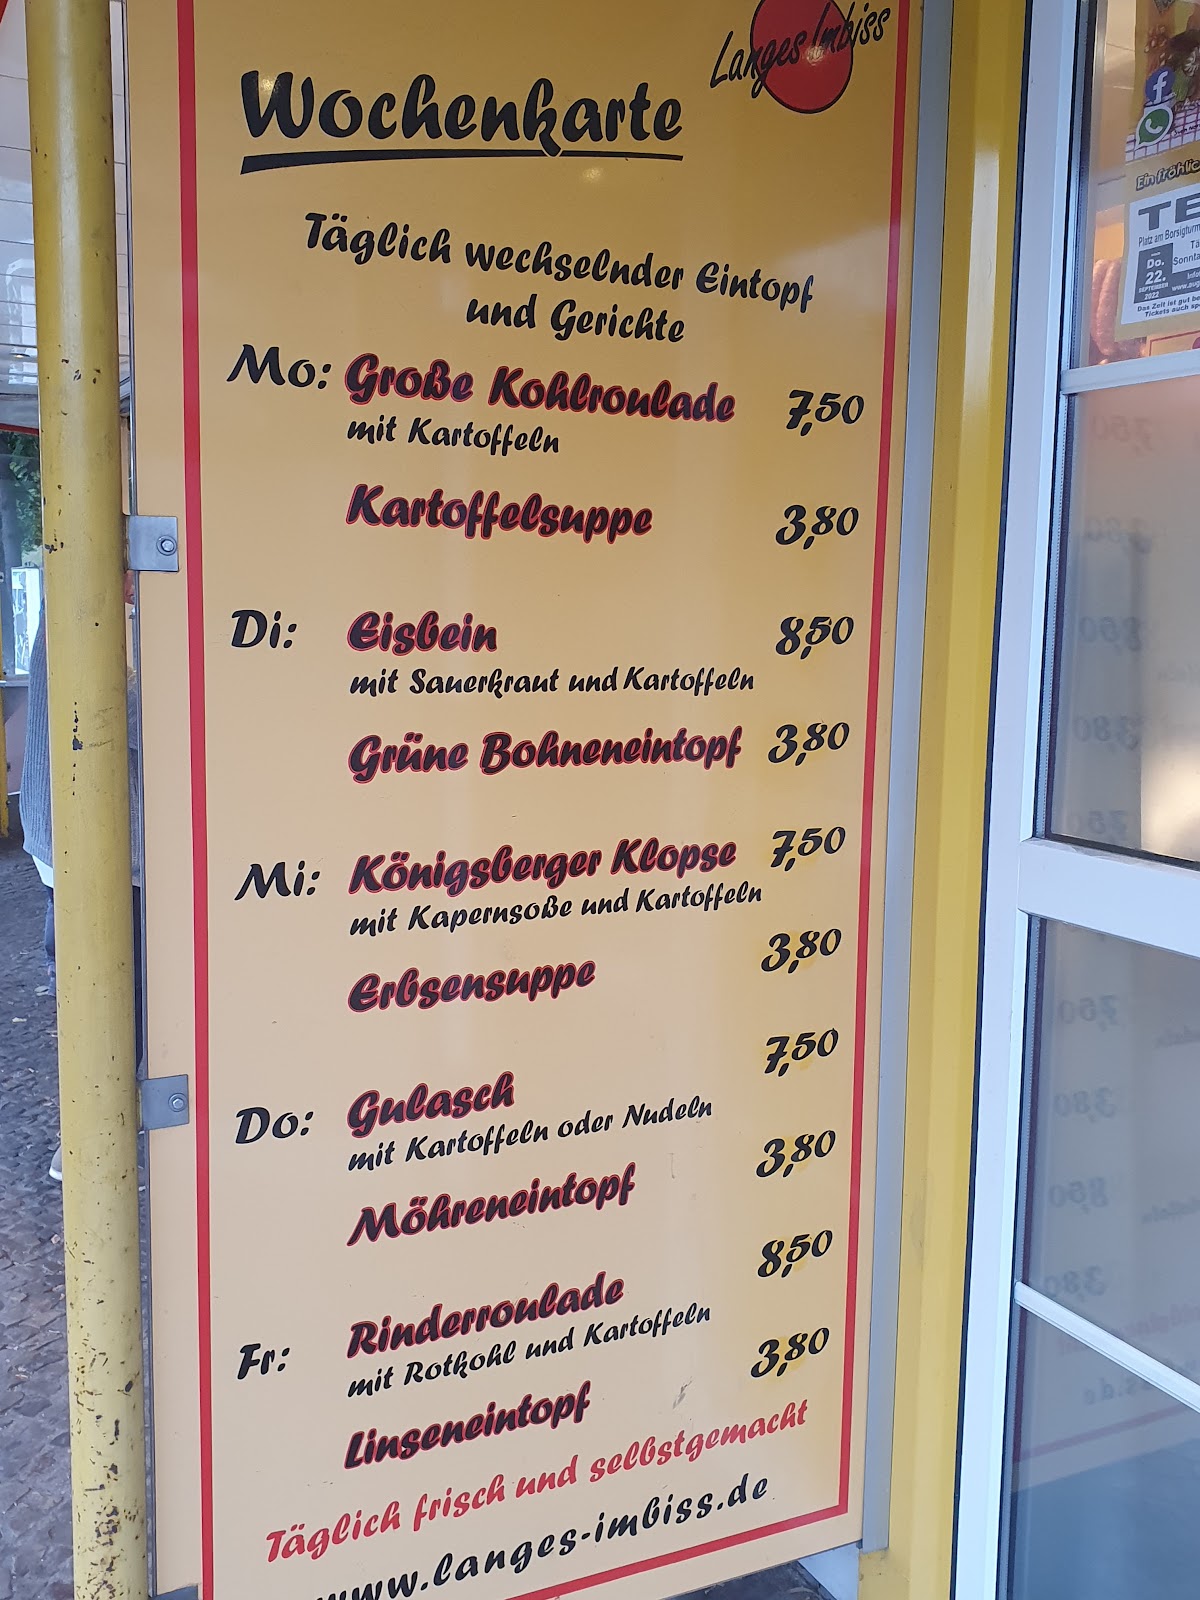 Langes Imbiss
Wochenkarte
Täglich wechselnder Eintopf
und Gerichte
Mo: Große Kohlroulade 7,50
mit Kartoffeln
Kartoffelsuppe 3,80
Di: Eisbein 8,50
mit Sauerkraut und Kartoffeln
Grüne Bohneneintopf 3,80
Mi: Königsberger Klopse 7,50
mit Kapernsoße und Kartoffeln
Erbsensuppe 3,80
Do: Gulasch 7,50
mit Kartoffeln oder Nudeln
Möhreneintopf 3,80
Fr: Rinderroulade 8,50
mit Rotkohl und Kartoffeln
Linseneintopf 3,80
Täglich frisch und selbstgemacht
www.langes-imbiss.de
Ein
TE
Platz am Borsigturm
Do.
22.
SEPTEMBER
2022
Das Zelt ist gut
Tickets auch